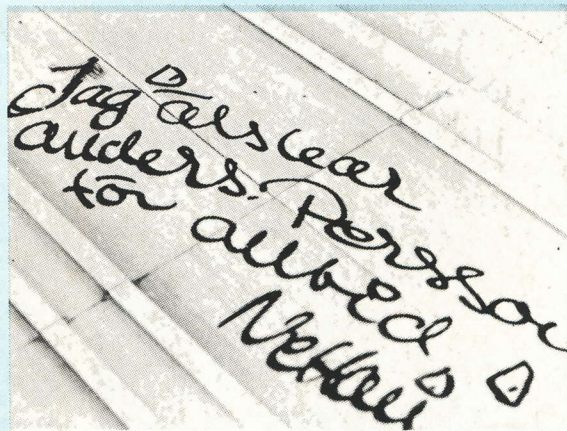 Jag älskar
anders. Persson
för alltid